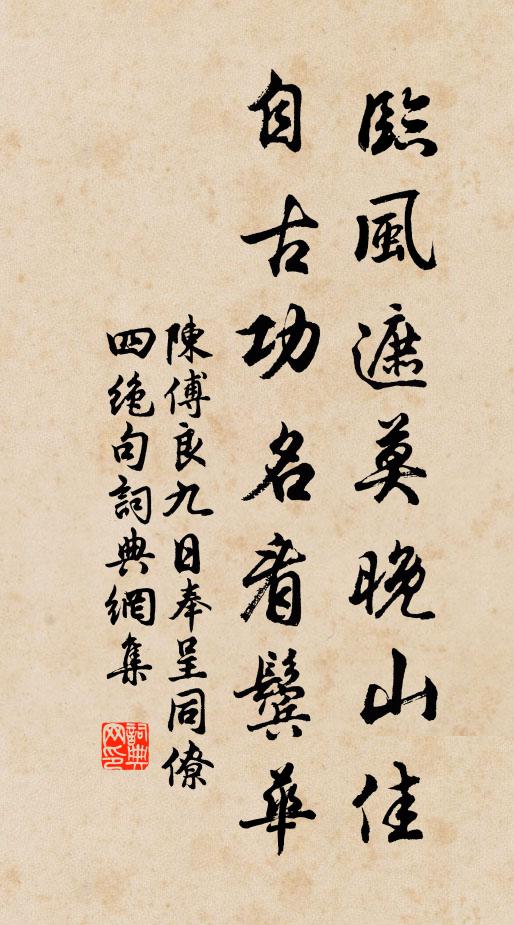 臨風遮莫晚山佳
自古功名看鬢華
陳傅良九日奉呈同僚
四絶句詞典網集
詞典網印